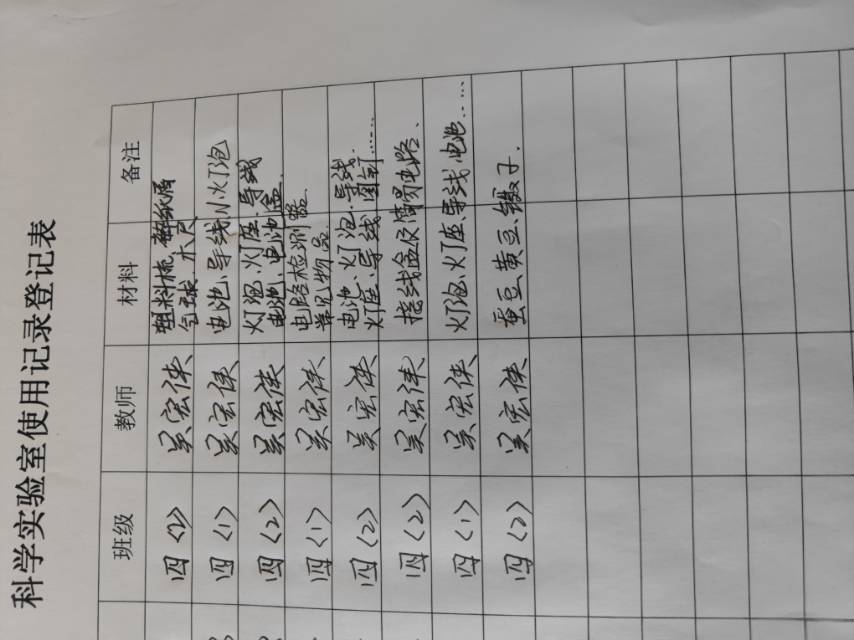 科学实验室使用记录登记表
班级 教师 材料 备注
四(2) 吴宏侠 塑料梳 碎纸屑
气球、木尺
四(1) 吴宏侠 电池、导线、小灯泡
四(2) 吴宏侠 灯泡、灯座、导线
电池、电池盒
四(1) 吴宏侠 电路检测器
常见物品
四(2) 吴宏侠 电池、灯泡、导线、
灯座、导线、图钉……
四(2) 吴宏侠 接线盒及简易电路、
四(1) 吴宏侠 灯泡、灯座、导线、电池……
四(2) 吴宏侠 蚕豆、黄豆、镊子.